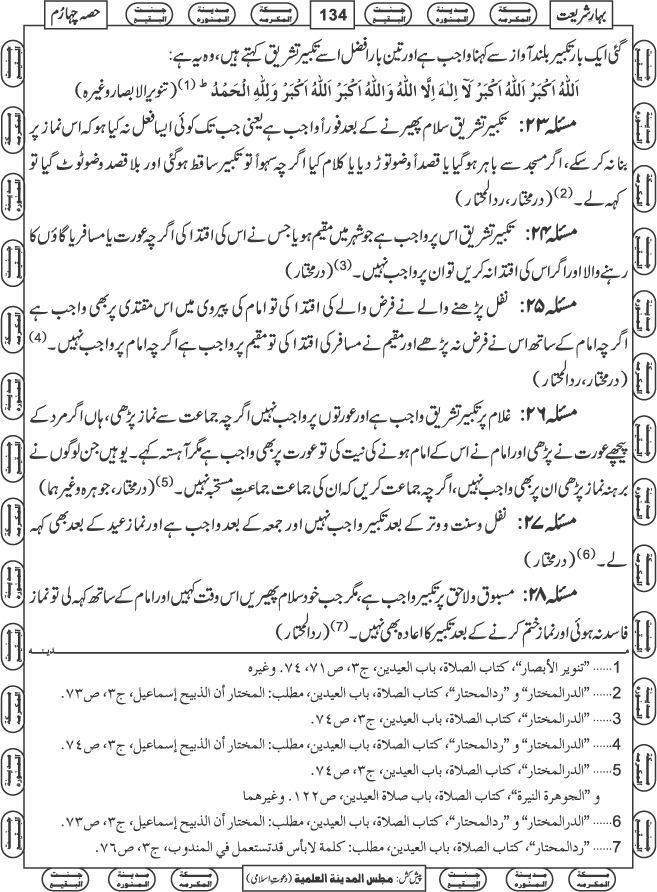 بہارِ شریعت
134
حصہ چہارم
گئی ایک بار تکبیر بلند آواز سے کہنا واجب ہے اور تین بار افضل اسے تکبیر تشریق کہتے ہیں، وہ یہ ہے:
اَللهُ اَكْبَرُ اَللهُ اَكْبَرُ لَآ اِلٰـهَ اِلَّا اللهُ وَاللهُ اَكْبَرُ اَللهُ اَكْبَرُ وَلِلّٰهِ الْحَمْدُ ط (1) (تنویر الابصار وغیرہ)
مسئلہ ۲۳: تکبیر تشریق سلام پھیرنے کے بعد فوراً واجب ہے یعنی جب تک کوئی ایسا فعل نہ کیا ہو کہ اس نماز پر
بنا نہ کر سکے، اگر مسجد سے باہر ہو گیا یا قصداً وضو توڑ دیا یا کلام کیا اگرچہ سہواً تو تکبیر ساقط ہو گئی اور بلا قصد وضو ٹوٹ گیا تو
کہہ لے۔ (2) (درمختار، ردالمحتار)
مسئلہ ۲۴: تکبیر تشریق اس پر واجب ہے جو شہر میں مقیم ہو یا جس نے اس کی اقتدا کی اگرچہ عورت یا مسافر یا گاؤں کا
رہنے والا اور اگر اس کی اقتدا نہ کریں تو ان پر واجب نہیں۔ (3) (درمختار)
مسئلہ ۲۵: نفل پڑھنے والے نے فرض والے کی اقتدا کی تو امام کی پیروی میں اس مقتدی پر بھی واجب ہے
اگرچہ امام کے ساتھ اس نے فرض نہ پڑھے اور مقیم نے مسافر کی اقتدا کی تو مقیم پر واجب ہے اگرچہ امام پر واجب نہیں۔ (4)
(درمختار، ردالمحتار)
مسئلہ ۲۶: غلام پر تکبیر تشریق واجب ہے اور عورتوں پر واجب نہیں اگرچہ جماعت سے نماز پڑھی، ہاں اگر مرد کے
پیچھے عورت نے پڑھی اور امام نے اس کے امام ہونے کی نیت کی تو عورت پر بھی واجب ہے مگر آہستہ کہے۔ یوہیں جن لوگوں نے
برہنہ نماز پڑھی ان پر بھی واجب نہیں، اگرچہ جماعت کریں کہ ان کی جماعت جماعتِ مستحبہ نہیں۔ (5) (درمختار، جوہرہ وغیرہما)
مسئلہ ۲۷: نفل و سنت و وتر کے بعد تکبیر واجب نہیں اور جمعہ کے بعد واجب ہے اور نماز عید کے بعد بھی کہہ
لے۔ (6) (درمختار)
مسئلہ ۲۸: مسبوق و لاحق پر تکبیر واجب ہے، مگر جب خود سلام پھیریں اس وقت کہیں اور امام کے ساتھ کہہ لی تو نماز
فاسد نہ ہوئی اور نماز ختم کرنے کے بعد تکبیر کا اعادہ بھی نہیں۔ (7) (ردالمحتار)
مدینہ
1...... ”تنوير الأبصار“، كتاب الصلاة، باب العيدين، ج٣، ص٧١، ٧٤. وغيره
2...... ”الدرالمختار“ و ”ردالمحتار“، كتاب الصلاة، باب العيدين، مطلب: المختار أن الذبيح إسماعيل، ج٣، ص٧٣.
3...... ”الدرالمختار“، كتاب الصلاة، باب العيدين، ج٣، ص٧٤.
4...... ”الدرالمختار“ و ”ردالمحتار“، كتاب الصلاة، باب العيدين، مطلب: المختار أن الذبيح إسماعيل، ج٣، ص٧٤.
5...... ”الدرالمختار“، كتاب الصلاة، باب العيدين، ج٣، ص٧٤.
و ”الجوهرة النيرة“، كتاب الصلاة، باب صلاة العيدين، ص١٢٢. وغيرهما
6...... ”الدرالمختار“ و ”ردالمحتار“، كتاب الصلاة، باب العيدين، مطلب: المختار أن الذبيح إسماعيل، ج٣، ص٧٣.
7...... ”ردالمحتار“، كتاب الصلاة، باب العيدين، مطلب: كلمة لابأس قدتستعمل في المندوب، ج٣، ص٧٦.
پیش کش: مجلس المدینة العلمیة (دعوتِ اسلامی)